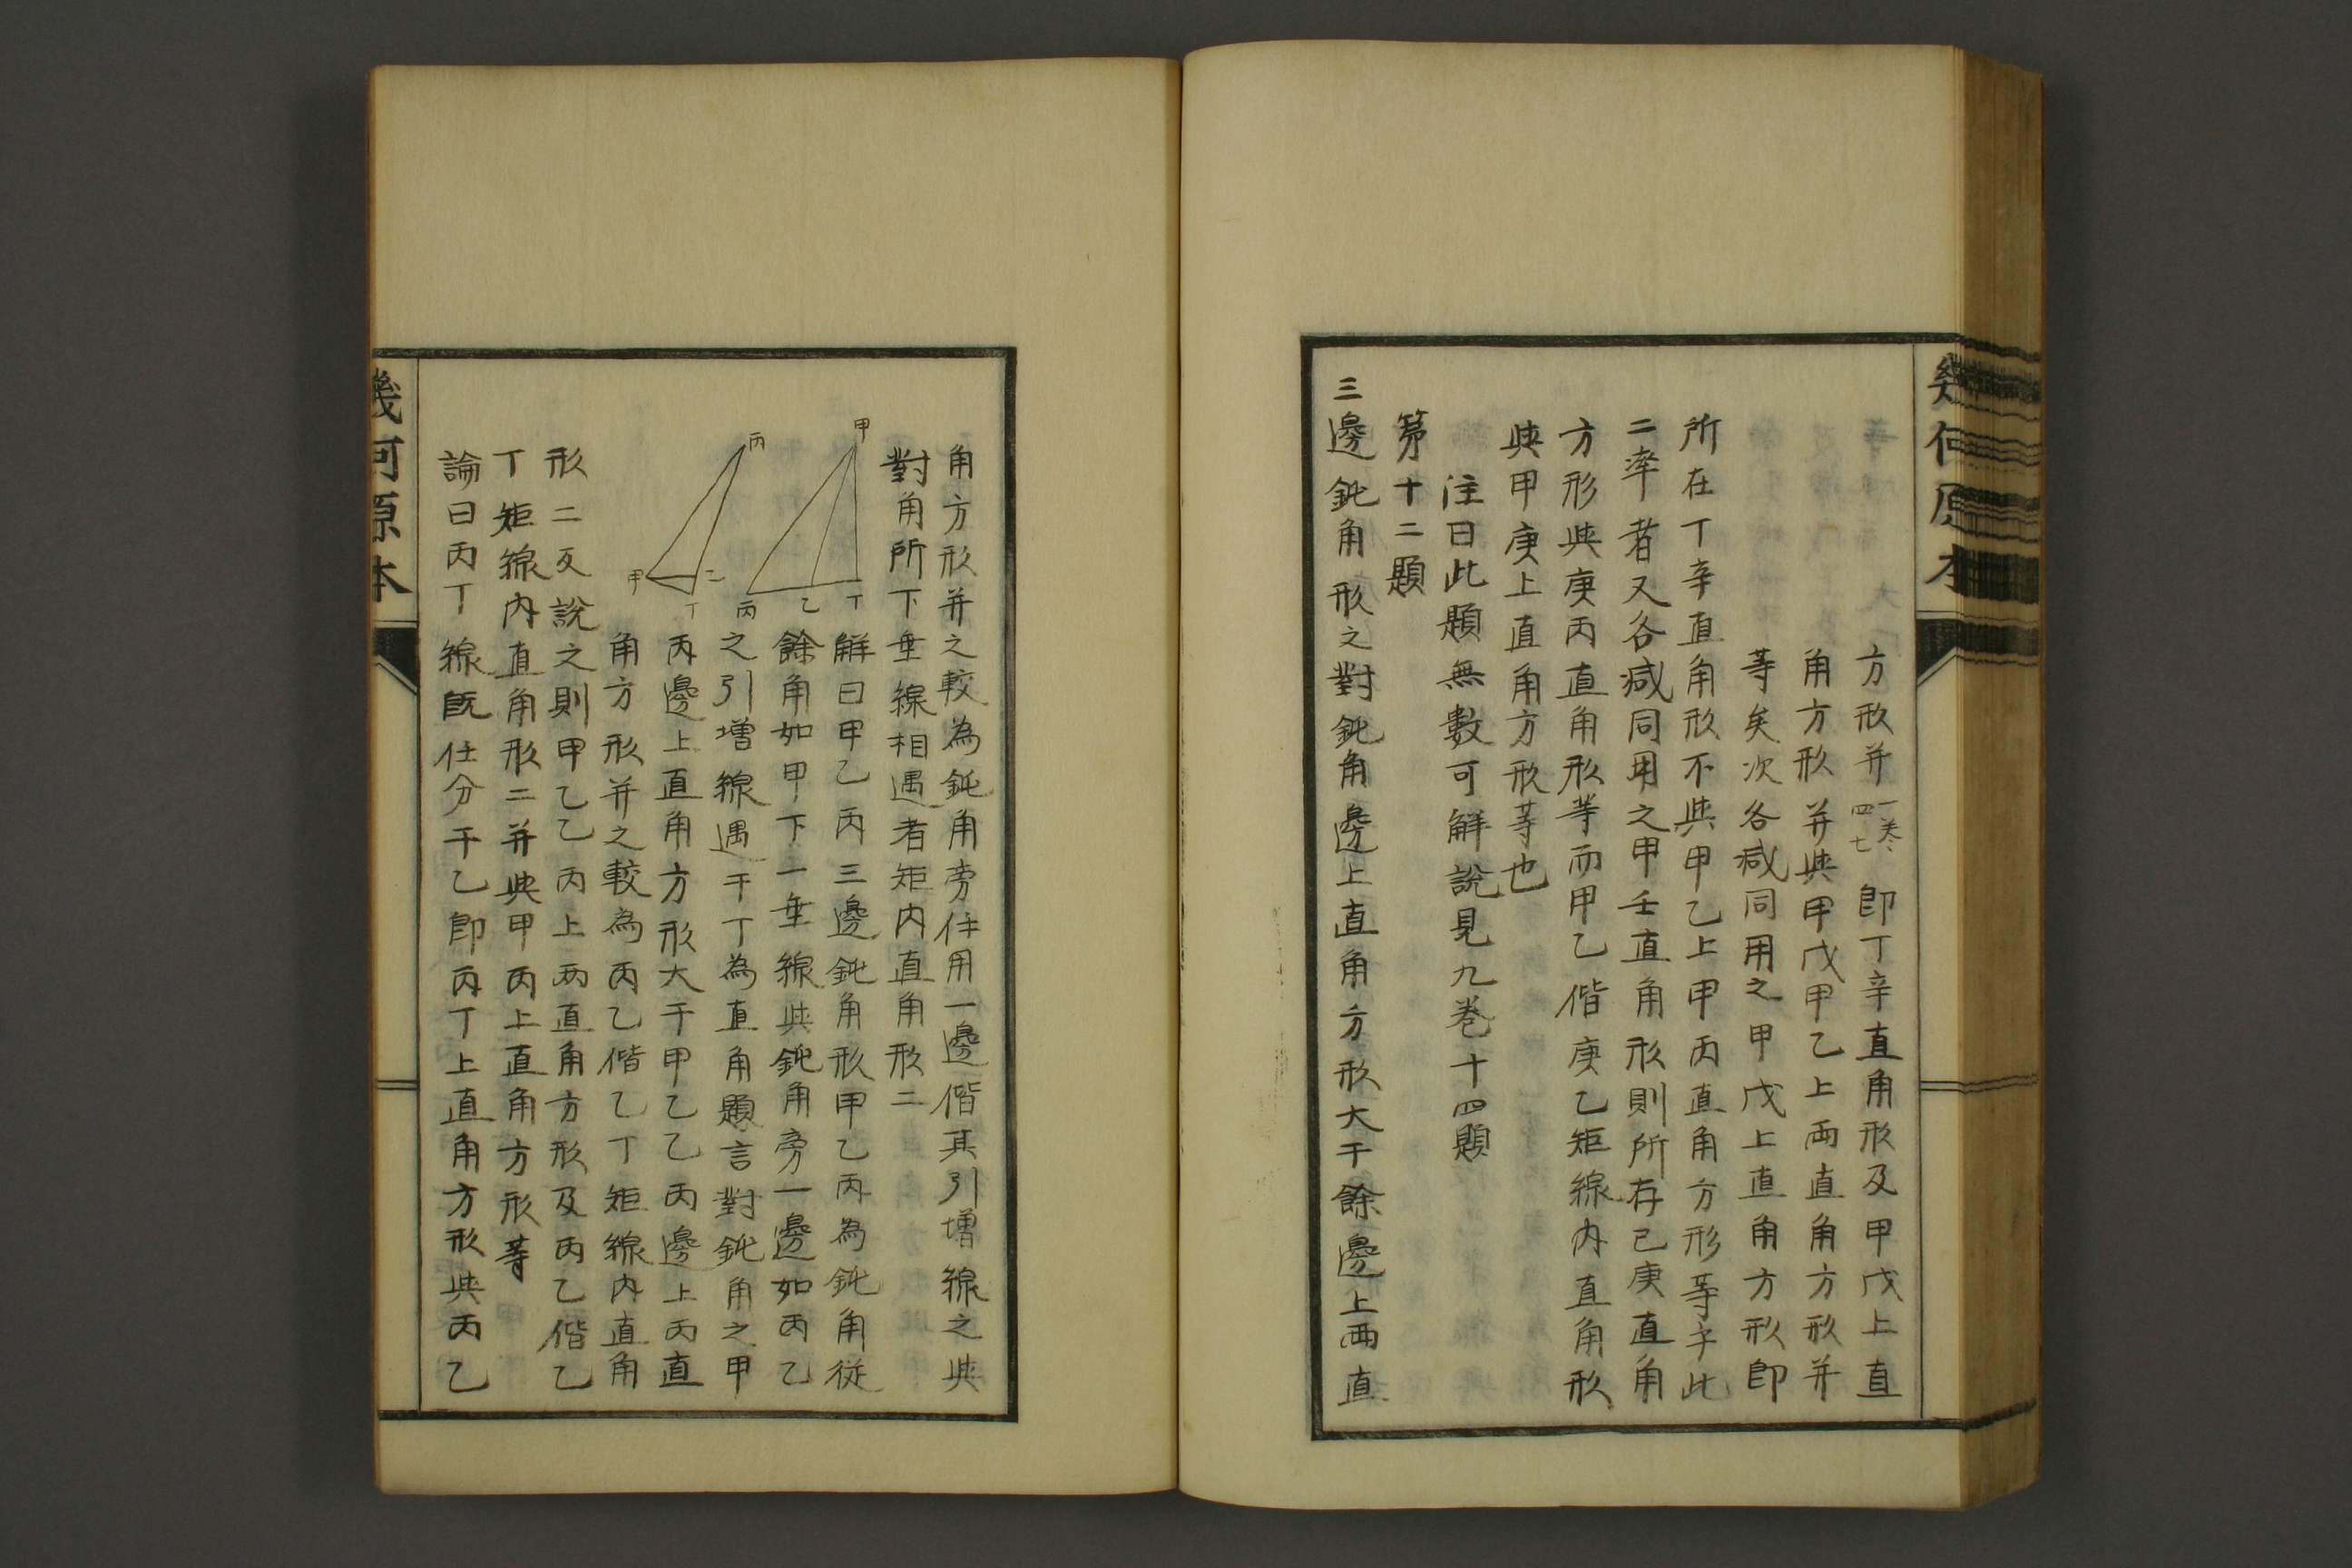 幾何原本
方形并一卷四七即丁辛直角形及甲戊上直
角方形并與甲戊甲乙上兩直角方形并
等矣次各減同用之甲戊上直角方形即
所在丁辛直角形不與甲乙上甲丙直角方形等乎此
二率者又各減同用之甲壬直角形則所存己庚直角
方形與庚丙直角形等而甲乙偕庚乙矩線內直角形
與甲庚上直角方形等也
注曰此題無數可解說見九卷十四題
第十二題
三邊鈍角形之對鈍角邊上直角方形大于餘邊上兩直
角方形并之較為鈍角旁任用一邊偕其引增線之與
對角所下垂線相遇者矩內直角形二
解曰甲乙丙三邊鈍角形甲乙丙為鈍角從
餘角如甲下一垂線與鈍角旁一邊如丙乙
之引增線遇于丁為直角題言對鈍角之甲
丙邊上直角方形大于甲乙乙丙邊上丙直
角方形并之較為丙乙偕乙丁矩線內直角
形二反說之則甲乙乙丙上兩直角方形及丙乙偕乙
丁矩線內直角形二并與甲丙上直角方形等
論曰丙丁線既任分于乙即丙丁上直角方形與丙乙
甲
丙
乙
丁
丙
甲
丁
幾何原本